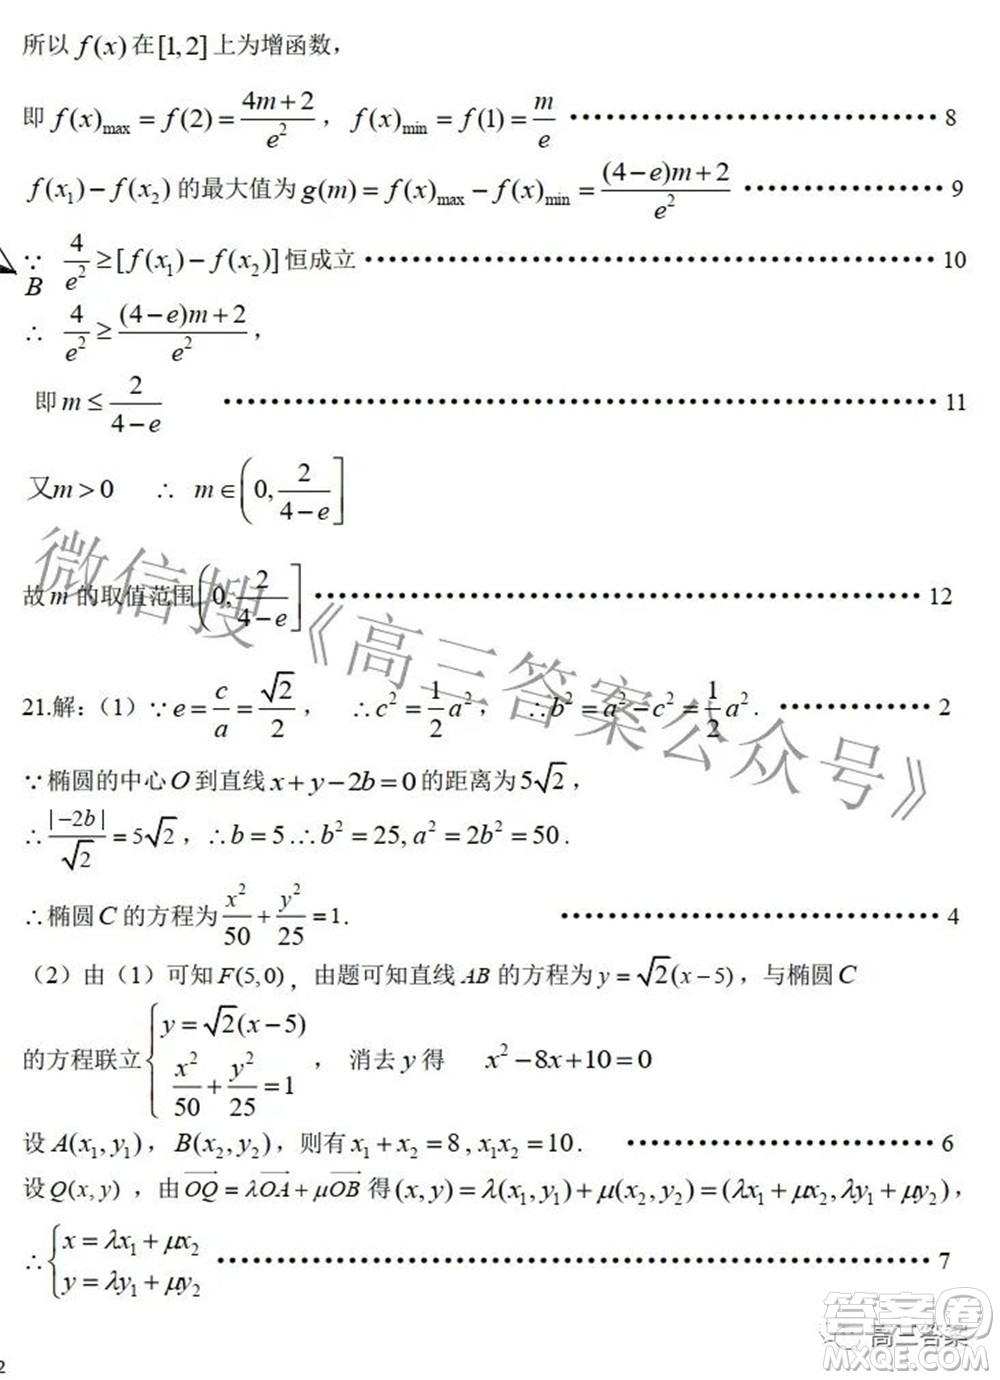 所以 f(x) 在 [1,2] 上为增函数，
即 f(x)max = f(2) = (4m+2)/e²， f(x)min = f(1) = m/e ································ 8
f(x₁) − f(x₂) 的最大值为 g(m) = f(x)max − f(x)min = ((4−e)m+2)/e² ················· 9
∵ 4/e² ≥ [f(x₁) − f(x₂)] 恒成立 ················································· 10
B
∴ 4/e² ≥ ((4−e)m+2)/e²，
即 m ≤ 2/(4−e) ····························································· 11
又m > 0 ∴ m ∈ (0, 2/(4−e)]
故 m 的取值范围 (0, 2/(4−e)] ····················································· 12
微信搜《高三答案公众号》
21.解：（1）∵ e = c/a = √2/2， ∴ c² = 1/2 a²， ∴ b² = a² − c² = 1/2 a². ············· 2
∵ 椭圆的中心 O 到直线 x + y − 2b = 0 的距离为 5√2，
∴ |−2b|/√2 = 5√2，∴ b = 5 ∴ b² = 25, a² = 2b² = 50.
∴ 椭圆 C 的方程为 x²/50 + y²/25 = 1. ································ 4
（2）由（1）可知 F(5,0)，由题可知直线 AB 的方程为 y = √2(x−5)，与椭圆 C
的方程联立 { y = √2(x−5)
x²/50 + y²/25 = 1 ， 消去 y 得 x² − 8x + 10 = 0
设 A(x₁, y₁)， B(x₂, y₂)，则有 x₁ + x₂ = 8, x₁x₂ = 10. ··························· 6
设 Q(x, y)，由 OQ = λOA + μOB 得 (x, y) = λ(x₁, y₁) + μ(x₂, y₂) = (λx₁ + μx₂, λy₁ + μy₂)，
∴ { x = λx₁ + μx₂
y = λy₁ + μy₂ ······························································· 7
答案卷
高三答案
MXQE.COM
2